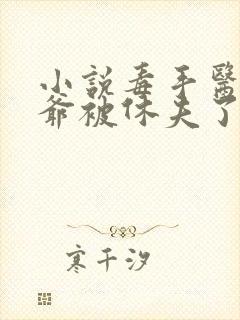 小說毒手醫
爺被休夫了
寒千汐